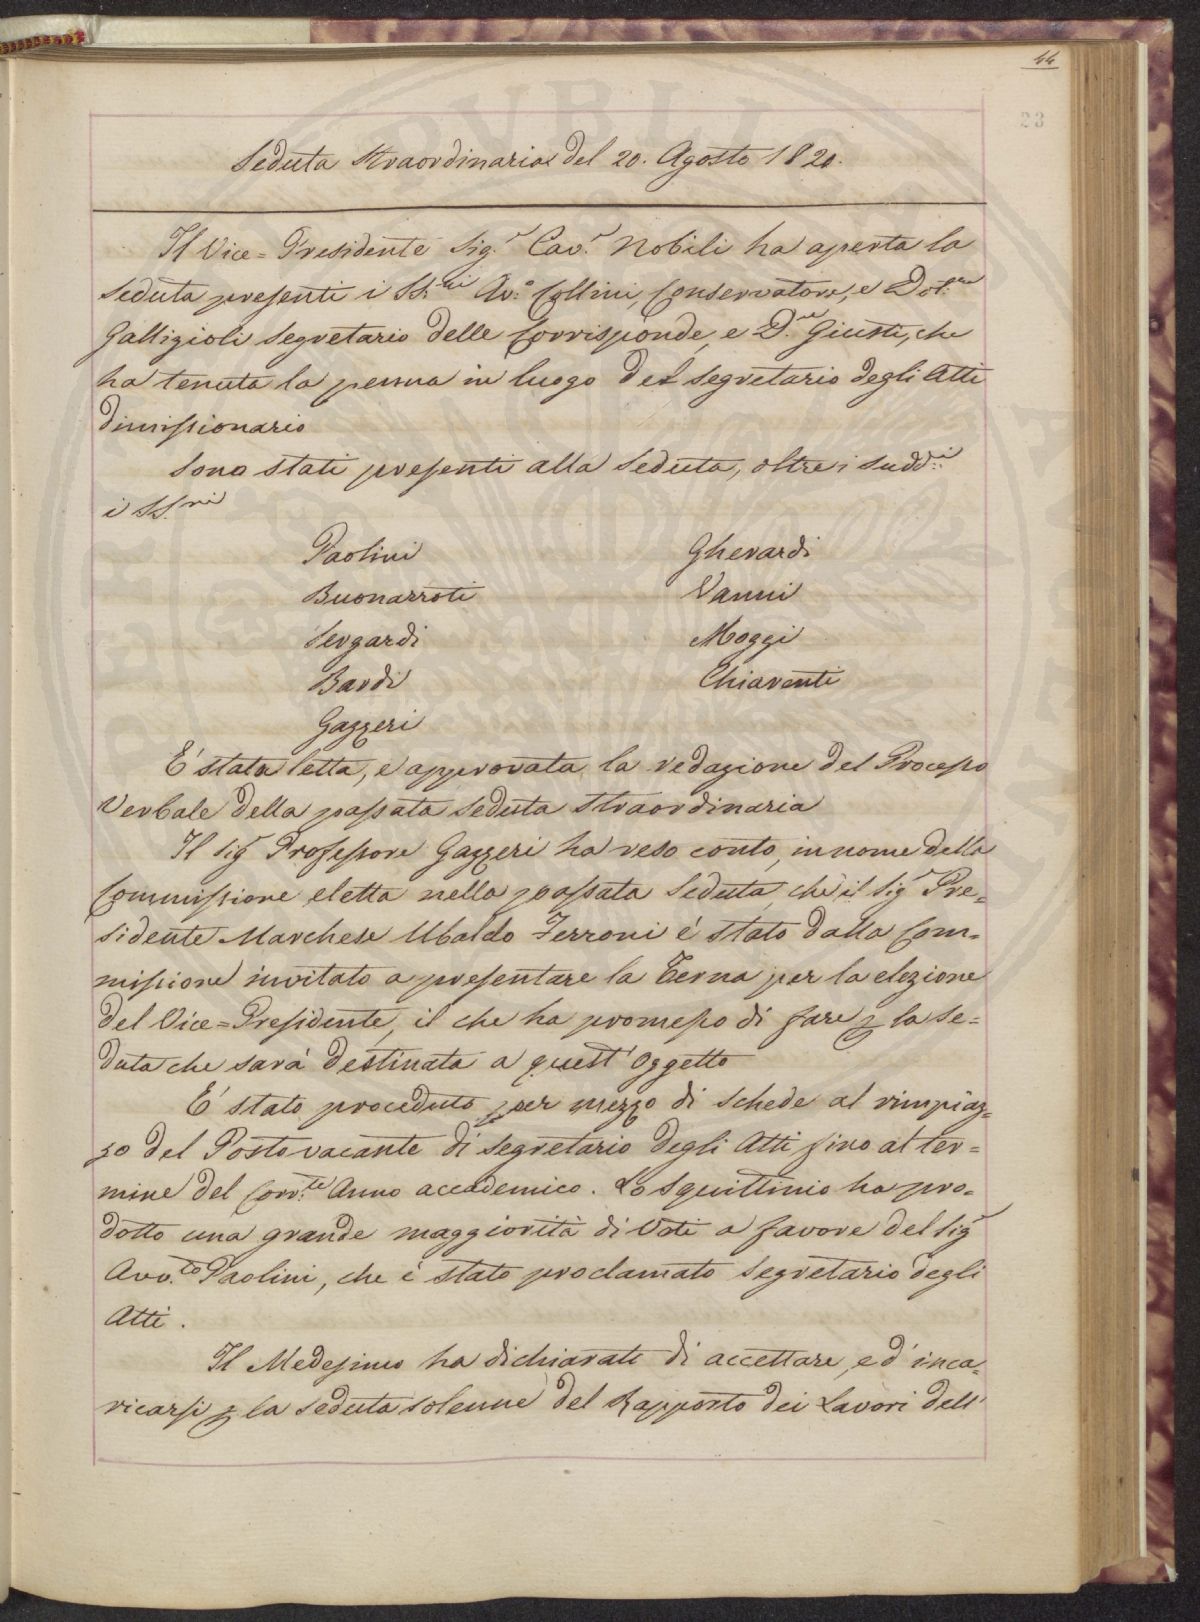 44
23
Seduta Straordinaria del 20. Agosto 1820.
Il Vice=Presidente Sig.r Cav.r Nobili ha aperta la
Seduta presenti i SS.ri Av.o Collini, Conservatore, e Dot.re
Gallizioli Segretario delle Corrisponde, e D.re Giusti, che
ha tenuta la penna in luogo del Segretario degli Atti
dimissionario
Sono stati presenti alla Seduta, oltre i Sudd.i
i SS.ri
Paolini Gherardi
Buonarroti Vanni
Sergardi Moggi
Bardi Chiarenti
Gazzeri
E' stata letta, e approvata la redazione del Processo
Verbale della passata Seduta Straordinaria
Il Sig.r Professore Gazzeri ha reso conto, in nome della
Commissione eletta nella passata Seduta, che il Sig.r Pre=
sidente Marchese Ubaldo Ferroni é stato dalla Com=
missione invitato a presentare la Terna per la elezione
del Vice=Presidente, il che ha promesso di fare p la Se=
duta che sarà destinata a quest'Oggetto
E' stato proceduto per mezzo di Schede al rimpiaz=
zo del Posto vacante di Segretario degli Atti fino al ter=
mine del Corr.te Anno accademico. Lo Squittinio ha pro=
dotto una grande maggiorità di Voti a favore del Sig.r
Avv.to Paolini, che é stato proclamato Segretario degli
Atti.
Il Medesimo ha dichiarato di accettare, ed'inca=
ricarsi p la Seduta solenne del Rapporto dei Lavori dell'